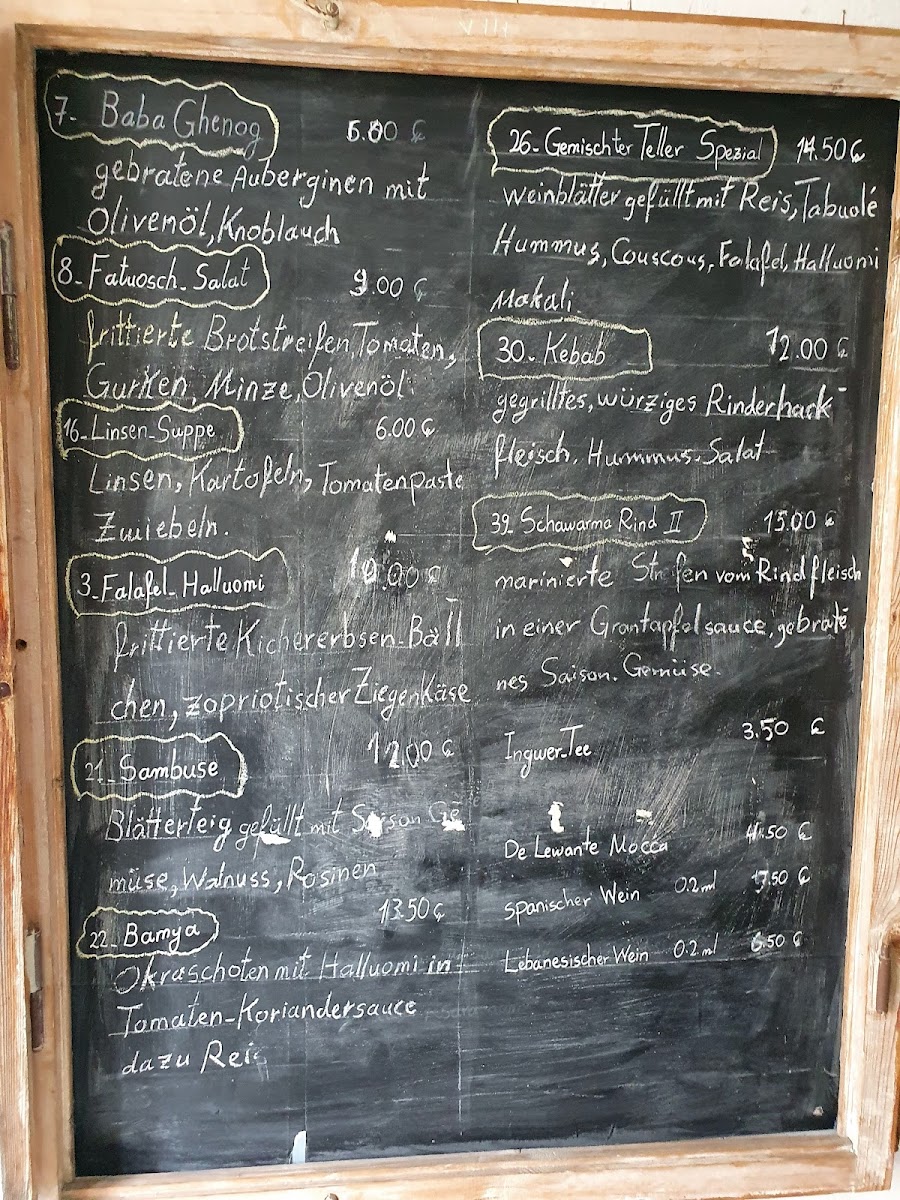 7- Baba Ghenog
gebratene Auberginen mit
Olivenöl, Knoblauch
8-Fatuosch-Salat 9.00 €
frittierte Brotstreifen, Tomaten,
Gurken, Minze, Olivenöl
16-Linsen-Suppe 6.00 €
Linsen, Kartofeln, Tomatenpaste
Zwiebeln.
3-Falafel-Halluomi 10.00 €
frittierte Kichererbsen-Bäll
chen, zopriotischer Ziegenkäse
21-Sambuse 12.00 €
Blätterteig gefüllt mit Saison Ge
müse, Walnuss, Rosinen
22-Bamya 13.50 €
Okraschoten mit Halluomi in
Tomaten-Koriandersauce
dazu Reis
26-Gemischter Teller Spezial 14.50 €
weinblätter gefüllt mit Reis, Tabuolé
Hummus, Couscous, Falafel, Halluomi
Makali
30-Kebab 12.00 €
gegrilltes, würziges Rinderhack-
fleisch, Hummus-Salat
39-Schawarma Rind II 15.00 €
marinierte Streifen vom Rindfleisch
in einer Grantapfelsauce, gebrate
nes Saison. Gemüse.
Ingwer-Tee 3.50 €
De Lewante Mocca
spanischer Wein 0.2ml
Lebanesischer Wein 0.2ml 6.50 €